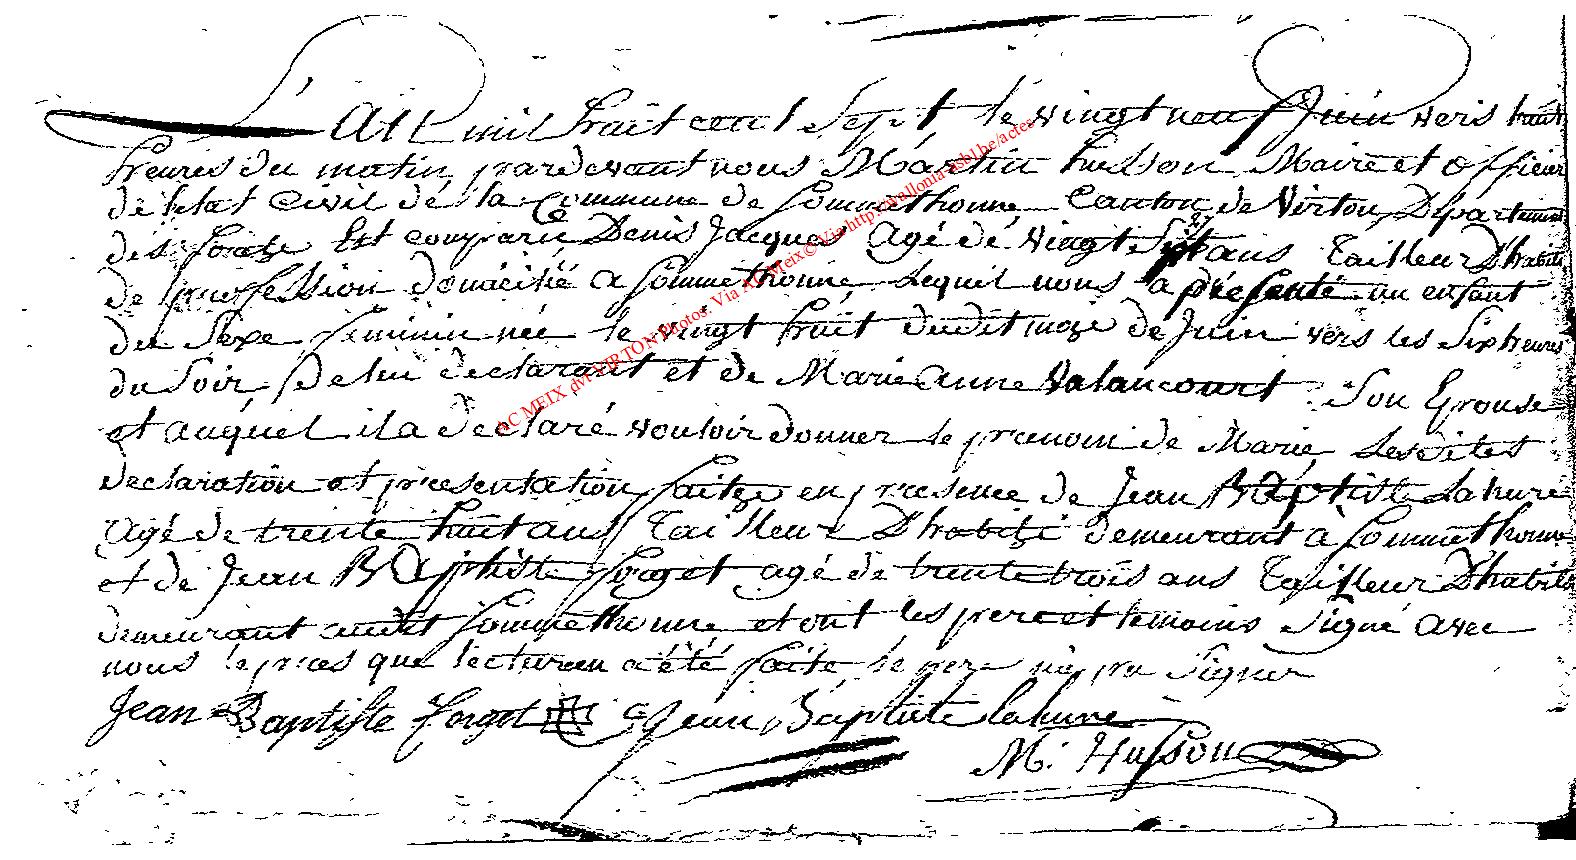 L'an mil huit cent Sept le vingt neuf Juin vers huit
heures du matin, pardevant nous Martin husson Maire et officier
de l'etat Civil de la Commune de Sommethonne Canton de Virton, Departement
des forets Est comparu Denis Jacques agé de vingt Sept ans Tailleur D'habits
de proffession domicilié a Sommethonne, Lequel nous a présenté un enfant
du Sexe feminin née le vingt huit dudit moze de Juin vers les Six heures
du Soir, De lui declarant et de Marie anne Valancourt Son Epouse
et auquel il a declaré vouloir donner le prenom de Marie, Lesdites
declaration et presentation faitze en presence de Jean BAptiste Lahure
agé de trente huit ans, Tailleur D'habitz demeurant a Sommethonne
et de Jean BAptiste forget agé de trente trois ans Tailleur D'habits
demeurant audit Sommethonne, et ont les pere et temoins Signé avec
nous le pres que lecture en a été faite, le pere n'a pu Signer
Jean Baptiste forget Jean, Baptiste Lahure
M. Husson
AC MEIX dvt VIRTON Photos: Via AC Meix© Via http://wallonia-asbl.be/actes